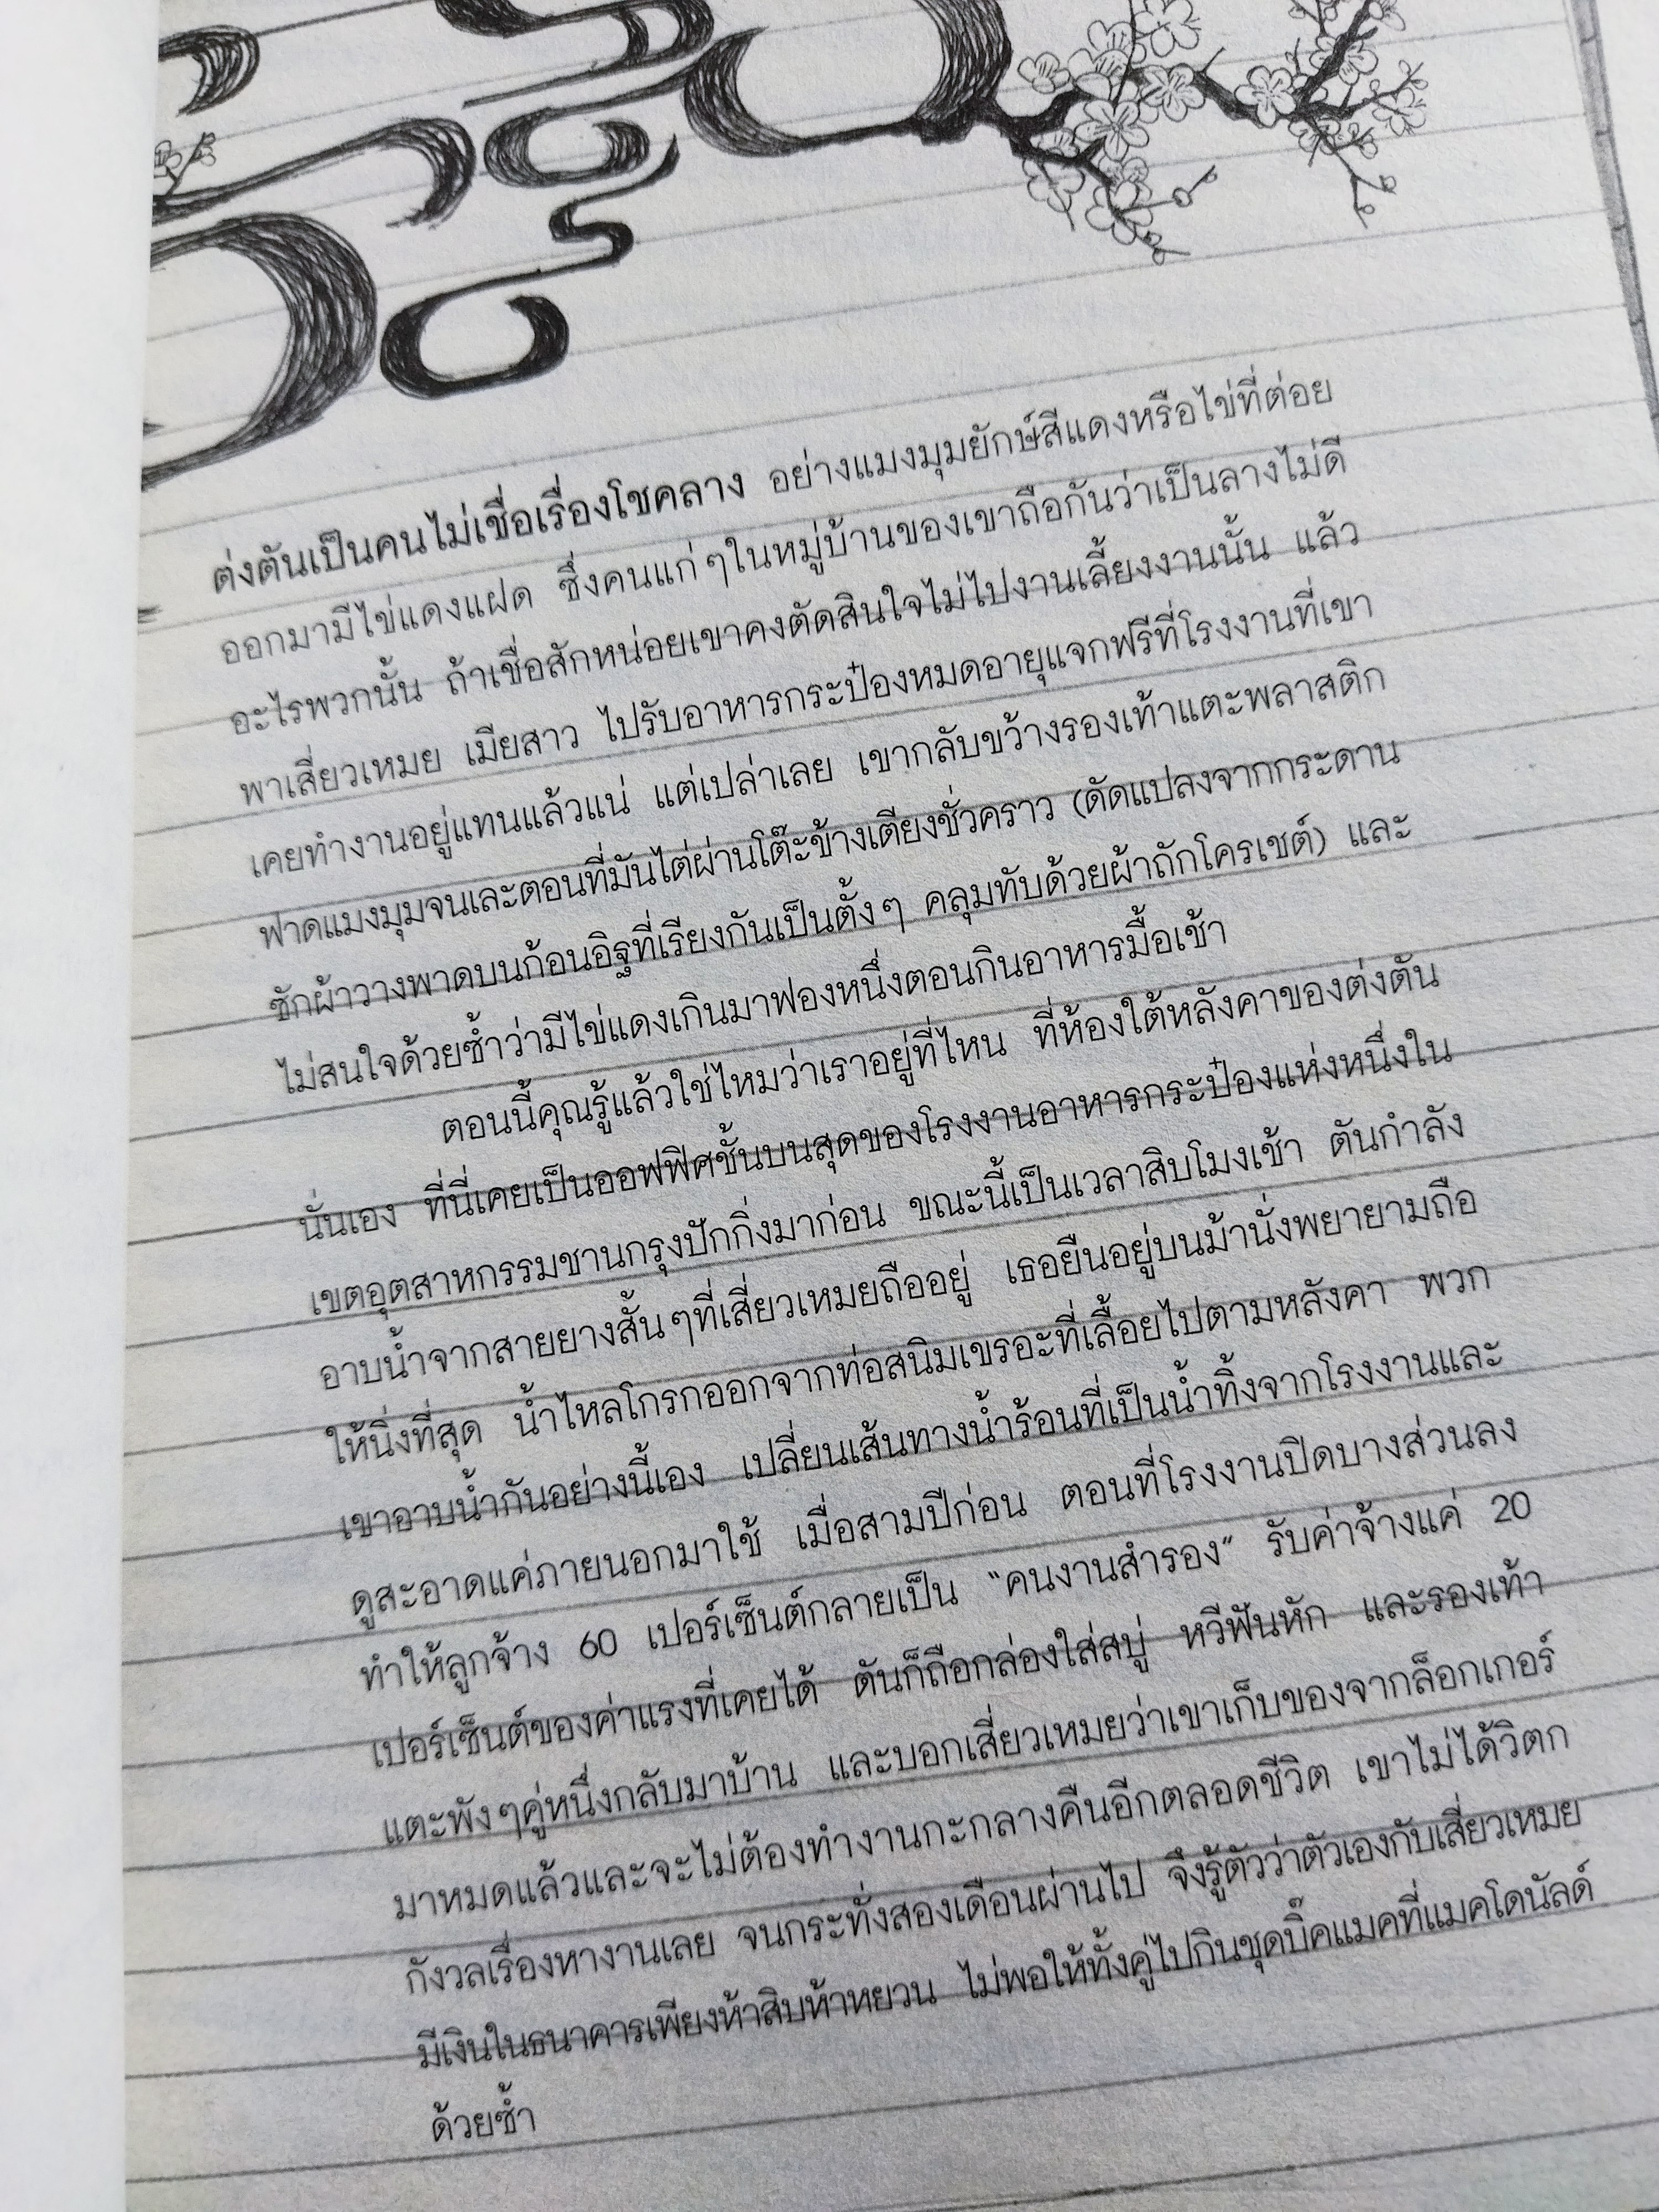 ต่งตันเป็นคนไม่เชื่อเรื่องโชคลาง อย่างแมงมุมยักษ์สีแดงหรือไข่ที่ต่อย
ออกมามีไข่แดงแฝด ซึ่งคนแก่ๆในหมู่บ้านของเขาถือกันว่าเป็นลางไม่ดี
อะไรพวกนั้น ถ้าเชื่อสักหน่อยเขาคงตัดสินใจไม่ไปงานเลี้ยงงานนั้น แล้ว
พาเสี่ยวเหมย เมียสาว ไปรับอาหารกระป๋องหมดอายุแจกฟรีที่โรงงานที่เขา
เคยทำงานอยู่แทนแล้วแน่ แต่เปล่าเลย เขากลับขว้างรองเท้าแตะพลาสติก
ฟาดแมงมุมจนเละตอนที่มันไต่ผ่านโต๊ะข้างเตียงชั่วคราว (ดัดแปลงจากกระดาน
ซักผ้าวางพาดบนก้อนอิฐที่เรียงกันเป็นตั้งๆ คลุมทับด้วยผ้าถักโครเชต์) และ
ไม่สนใจด้วยซ้ำว่ามีไข่แดงเกินมาฟองหนึ่งตอนกินอาหารมื้อเช้า
ตอนนี้คุณรู้แล้วใช่ไหมว่าเราอยู่ที่ไหน ที่ห้องใต้หลังคาของต่งตัน
นั่นเอง ที่นี่เคยเป็นออฟฟิศชั้นบนสุดของโรงงานอาหารกระป๋องแห่งหนึ่งใน
เขตอุตสาหกรรมชานกรุงปักกิ่งมาก่อน ขณะนี้เป็นเวลาสิบโมงเช้า ตันกำลัง
อาบน้ำจากสายยางสั้นๆที่เสี่ยวเหมยถืออยู่ เธอยืนอยู่บนม้านั่งพยายามถือ
ให้นิ่งที่สุด น้ำไหลโกรกออกจากท่อสนิมเขรอะที่เลื้อยไปตามหลังคา พวก
เขาอาบน้ำกันอย่างนี้เอง เปลี่ยนเส้นทางน้ำร้อนที่เป็นน้ำทิ้งจากโรงงานและ
ดูสะอาดแค่ภายนอกมาใช้ เมื่อสามปีก่อน ตอนที่โรงงานปิดบางส่วนลง
ทำให้ลูกจ้าง 60 เปอร์เซ็นต์กลายเป็น “คนงานสำรอง” รับค่าจ้างแค่ 20
เปอร์เซ็นต์ของค่าแรงที่เคยได้ ตันก็ถือกล่องใส่สบู่ หวีฟันหัก และรองเท้า
แตะพังๆคู่หนึ่งกลับมาบ้าน และบอกเสี่ยวเหมยว่าเขาเก็บของจากล็อกเกอร์
มาหมดแล้วและจะไม่ต้องทำงานกะกลางคืนอีกตลอดชีวิต เขาไม่ได้วิตก
กังวลเรื่องหางานเลย จนกระทั่งสองเดือนผ่านไป จึงรู้ตัวว่าตัวเองกับเสี่ยวเหมย
มีเงินในธนาคารเพียงห้าสิบห้าหยวน ไม่พอให้ทั้งคู่ไปกินชุดบิ๊คแมคที่แมคโดนัลด์
ด้วยซ้ำ